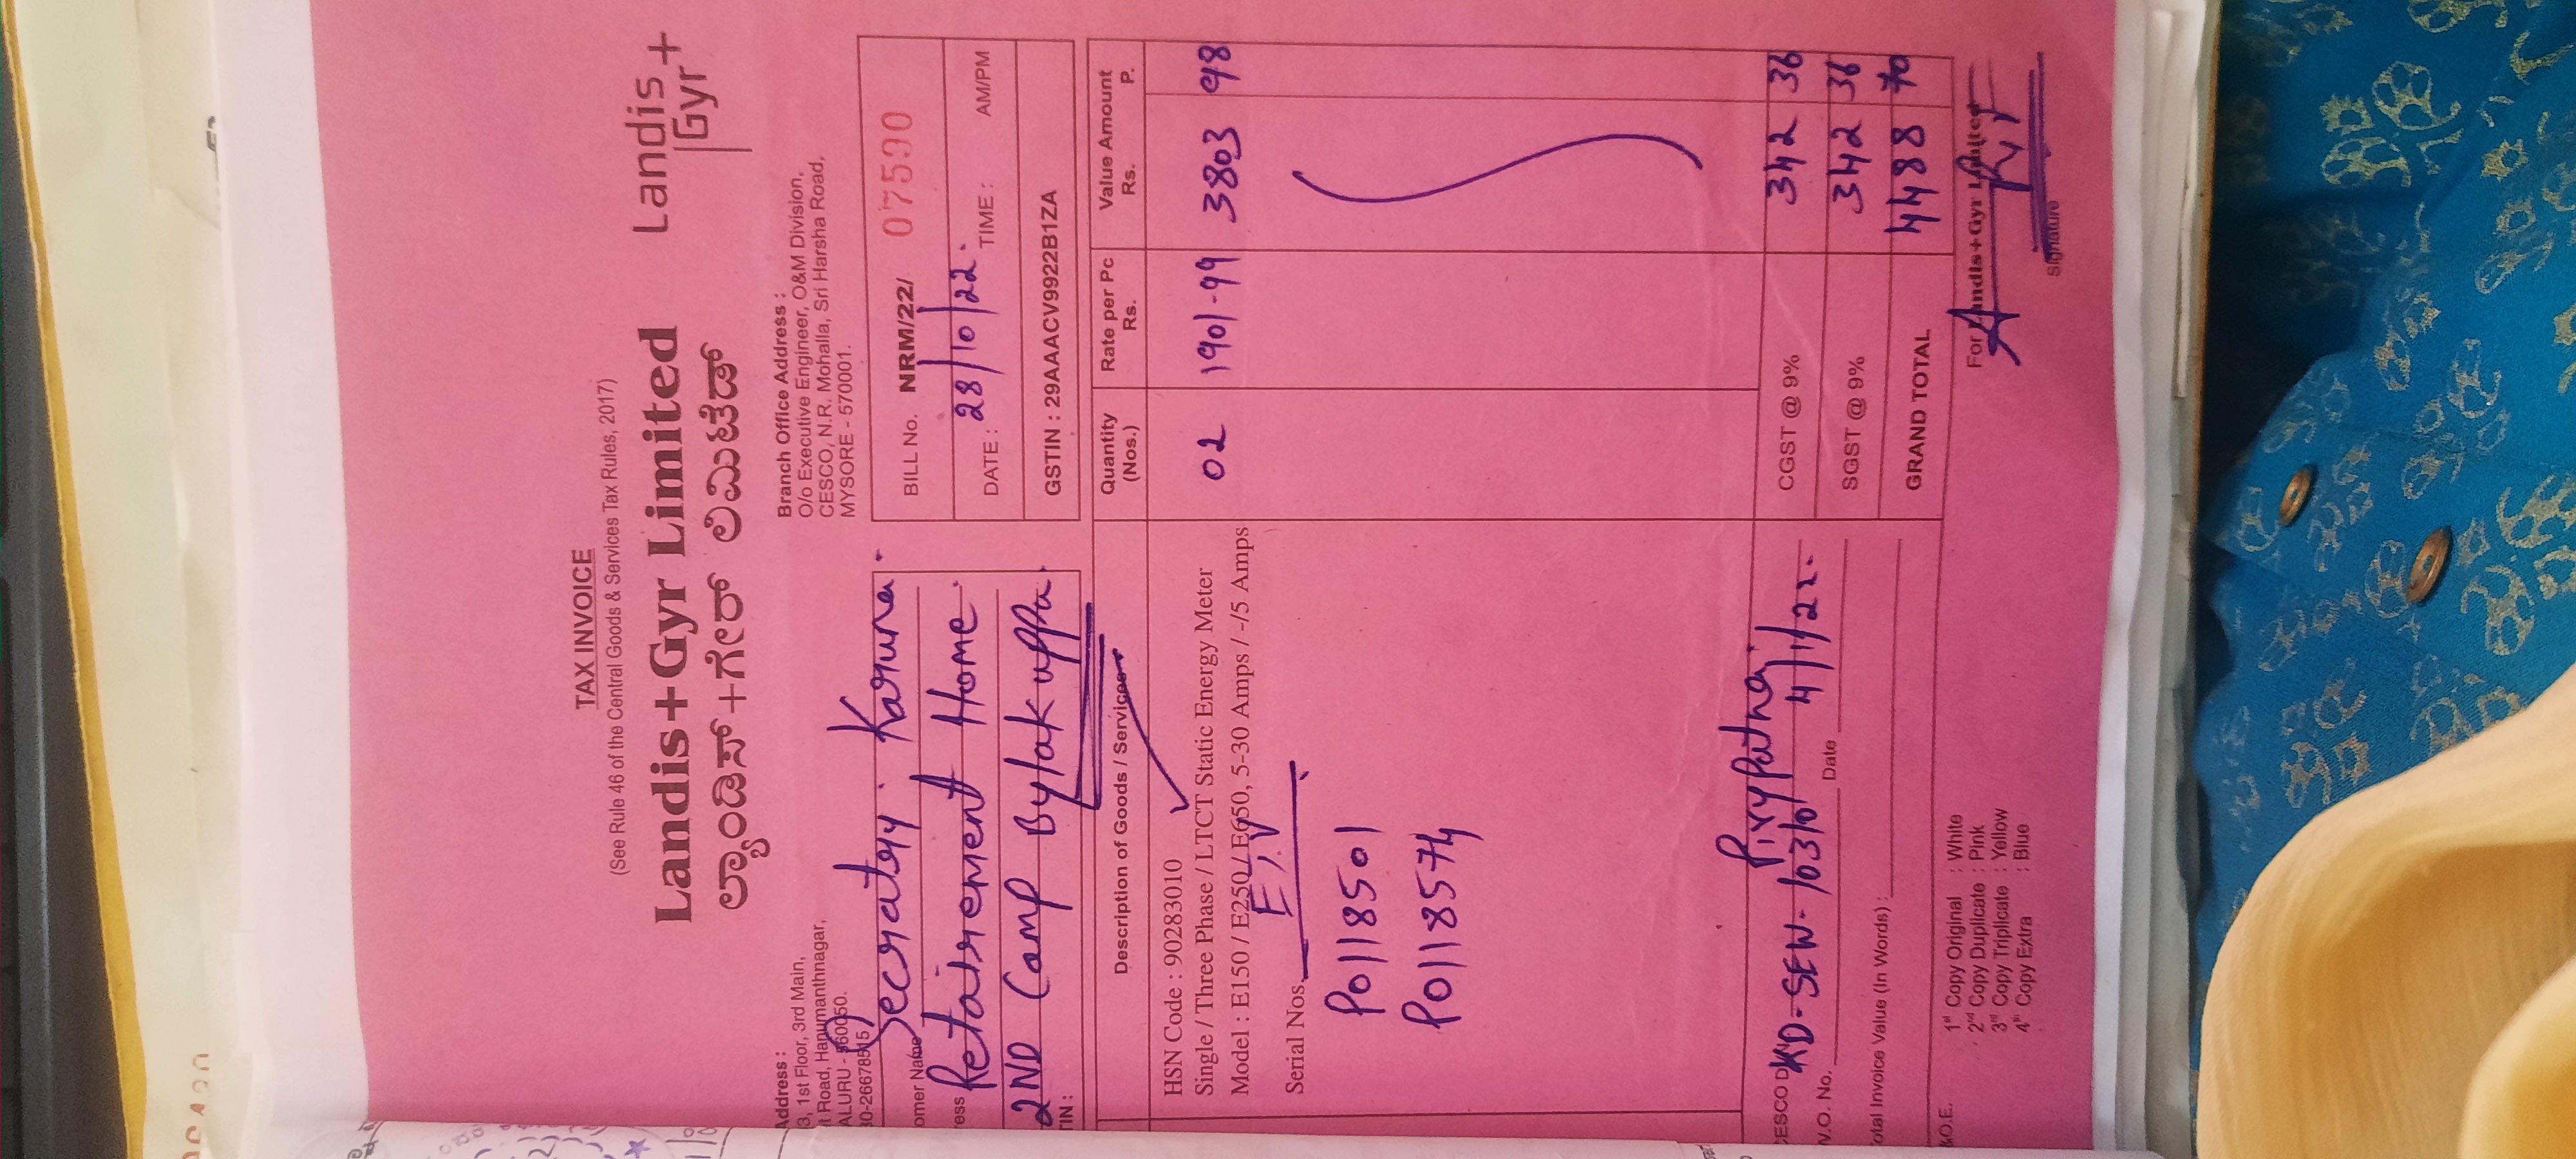 TAX INVOICE
(See Rule 46 of the Central Goods & Services Tax Rules, 2017)
Landis+Gyr Limited
ಲ್ಯಾಂಡಿಸ್+ಗೇರ್ ಲಿಮಿಟೆಡ್
Landis
Gyr+
Address :
3, 1st Floor, 3rd Main,
t Road, Hanumanthnagar,
ALURU - 560050.
30-26678515
Branch Office Address :
O/o Executive Engineer, O&M Division,
CESCO, N.R. Mohalla, Sri Harsha Road,
MYSORE - 570001.
omer Name Secratry. Karuna.
ress Retairement Home.
2ND Camp Bylakuppa.
TIN :
BILL No. NRM/22/ 075590
DATE : 28/10/22. TIME : AM/PM
GSTIN : 29AAACV9922B1ZA
Description of Goods / Services Quantity (Nos.) Rate per Pc Rs. Value Amount Rs. P.
HSN Code : 90283010
Single / Three Phase / LTCT Static Energy Meter 02 1901-99 3803 98
Model : E150 / E250 / E650, 5-30 Amps / -/5 Amps
Serial Nos.
P0118501
P0118574
CESCO KD-SEW-10310 4/1/22. CGST @ 9% 342 36
N.O. No. Date SGST @ 9% 342 36
otal Invoice Value (In Words) : GRAND TOTAL 4488 70
&O.E.
1st Copy Original : White
2nd Copy Duplicate : Pink
3rd Copy Triplicate : Yellow
4th Copy Extra : Blue
For Landis+Gyr Limited
Signature